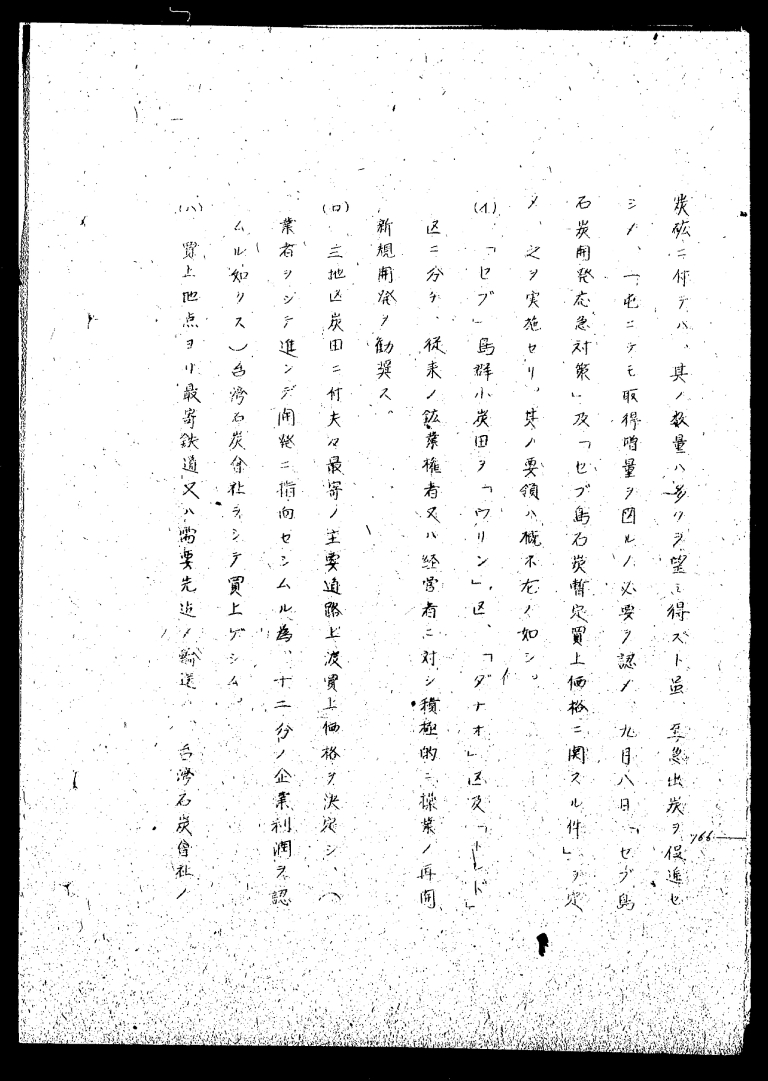 炭砿ニ付テハ、其ノ数量ハ多クヲ望ミ得ズト虽 至急出炭ヲ促進セ
シメ、一屯ニテモ取得増量ヲ図ルノ必要ヲ認メ 九月八日「セブ島
石炭開発応急対策」及「セブ島石炭暫定買上価格ニ関スル件」ヲ定
メ、之ヲ実施セリ。其ノ要領ハ概ネ左ノ如シ。
(イ) 「セブ」島群小炭田ヲ「ウリン」区、「ダナオ」区及「トレド」
区ニ分チ、従来ノ鉱業権者又ハ経営者ニ対シ積極的ニ操業ノ再開
新規開発ヲ勧奨ス。
(ロ) 三地区炭田ニ付夫々最寄ノ主要道路上渡買上価格ヲ決定シ、(
業者ヲシテ進ンデ開発ニ指向セシムル為、十二分ノ企業利潤ヲ認
ムル如クス)台湾石炭會社ヲシテ買上ゲシム。
(ハ) 買上地点ヨリ最寄鉄道又ハ需要先迄ノ輸送ハ、台湾石炭會社ノ
766